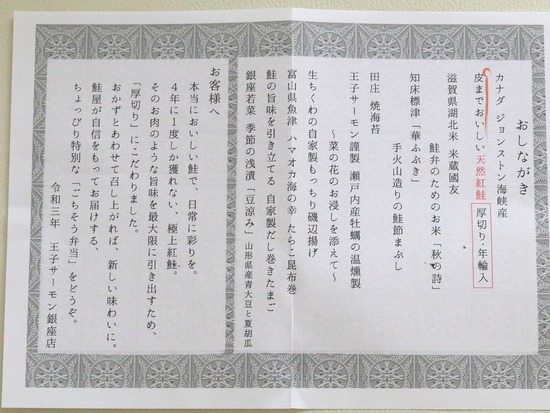 おしながき
カナダ ジョンストン海峡産
皮までおいしい 天然紅鮭 厚切り・年輪入
滋賀県湖北米 米蔵國友
鮭弁のためのお米「秋の詩」
知床標津「華ふぶき」
手火山造りの鮭節まぶし
田庄 焼海苔
王子サーモン謹製 瀬戸内産牡蠣の温燻製
～菜の花のお浸しを添えて～
生ちくわの自家製もっちり磯辺揚げ
富山県魚津 ハマオカ海の幸 たらこ昆布巻
鮭の旨味を引き立てる 自家製だし巻きたまご
銀座若菜 季節の浅漬「豆涼み」 山形県産青大豆と夏胡瓜
お客様へ
本当においしい鮭で、日常に彩りを。
４年に１度しか獲れない、極上紅鮭。
そのお肉のような旨味を最大限に引き出すため、
「厚切り」にこだわりました。
おかずとあわせて召し上がれば、新しい味わいに。
鮭屋が自信をもってお届けする、
ちょっぴり特別な「ごちそう弁当」をどうぞ。
令和三年 王子サーモン銀座店